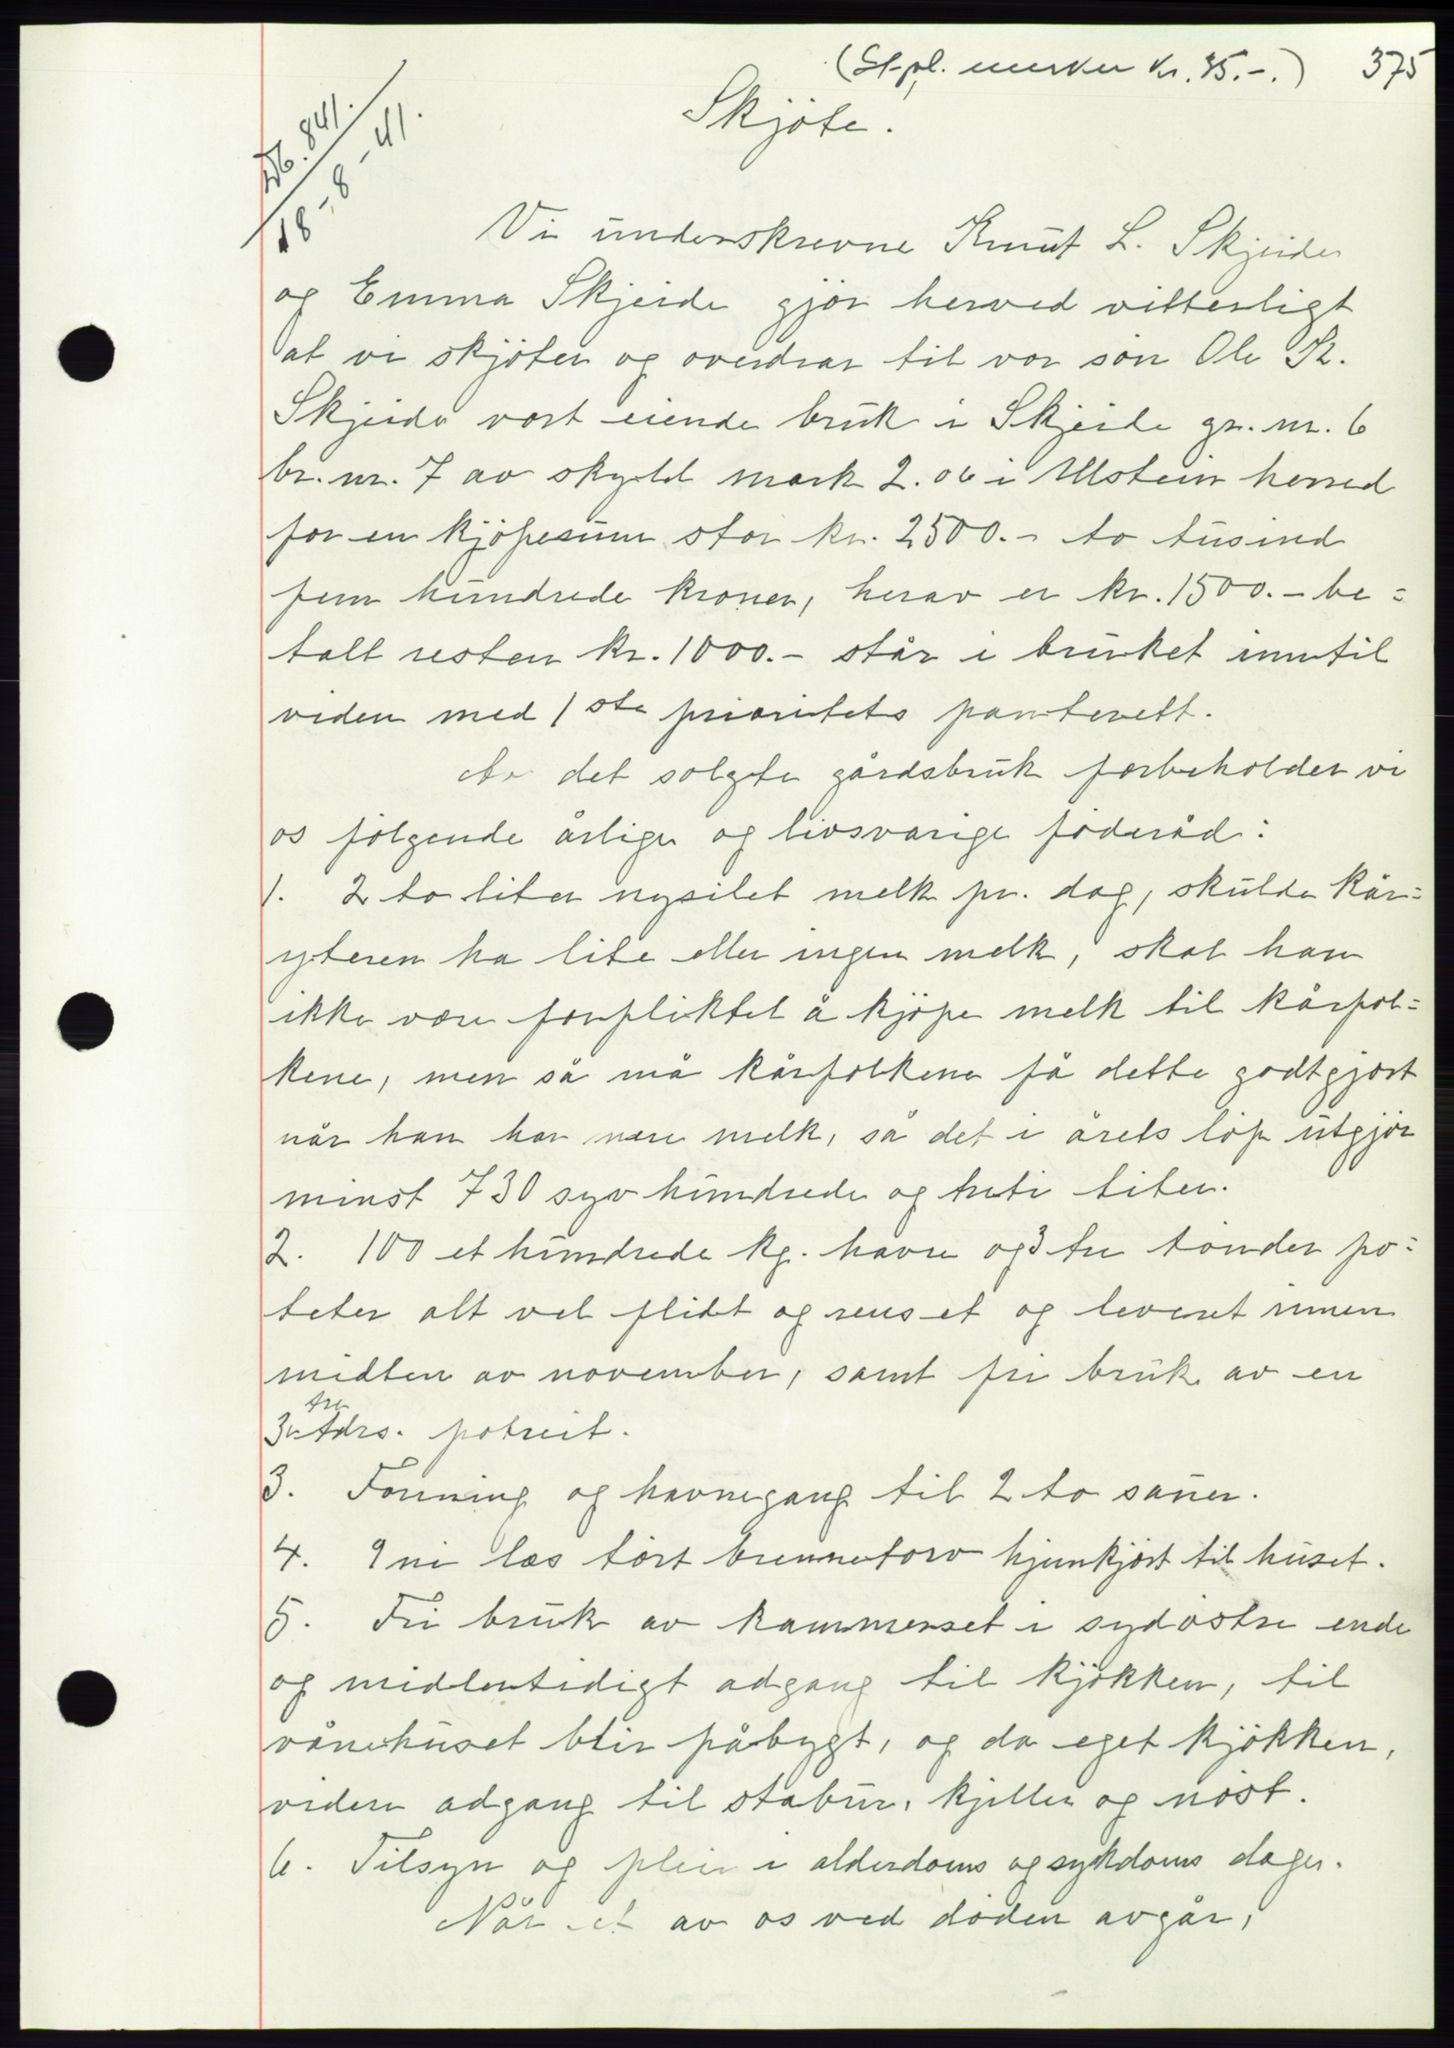 (St.pl. merker kr. 35.-.) 375
Skjöte.
Db. 841.
18-8-41.
Vi underskrevne Knut L. Skjeide
og Emma Skjeide gjör herved vitterligt
at vi skjöter og overdrar til vor sön Ole K.
Skjeide vort eiende bruk i Skjeide gr. nr. 6
br. nr. 7 av skyld mark 2.06 i Ulstein herred
for en kjöpesum stor kr. 2500.- to tusind
fem hundrede kroner, herav er kr. 1500.- be=
talt resten kr. 1000.- står i bruket inntil
videre med 1ste prioritets panterett.
Av det solgte gårdsbruk forbeholder vi
os fölgende årlige og livsvarige föderåd:
1. 2 to liter nysilet melk pr. dag, skulde kår=
yteren ha lite eller ingen melk, skal han
ikke være forpliktet å kjöpe melk til kårfol=
kene, men så må kårfolkene få dette godtgjort
når han har mere melk, så det i årets löp utgjör
minst 730 syv hundrede og treti liter.
2. 100 et hundrede kg. havre og 3 tre tönder po=
teter alt vel flidt og renset og leveret innen
midten av november, samt fri bruk av en
3 tre tdrs. potreit.
3. Foring og havnegang til 2 to sauer.
4. 9 ni læs tört brennetorv hjemkjört til huset.
5. Fri bruk av kammerset i sydöstre ende
og midlertidigt adgang til kjökken, til
vånehuset blir påbygt, og da eget kjökken,
videre adgang til stabur, kjeller og nöst.
6. Tilsyn og pleie i alderdoms og sykdoms dager.
Når et av os ved döden avgår,